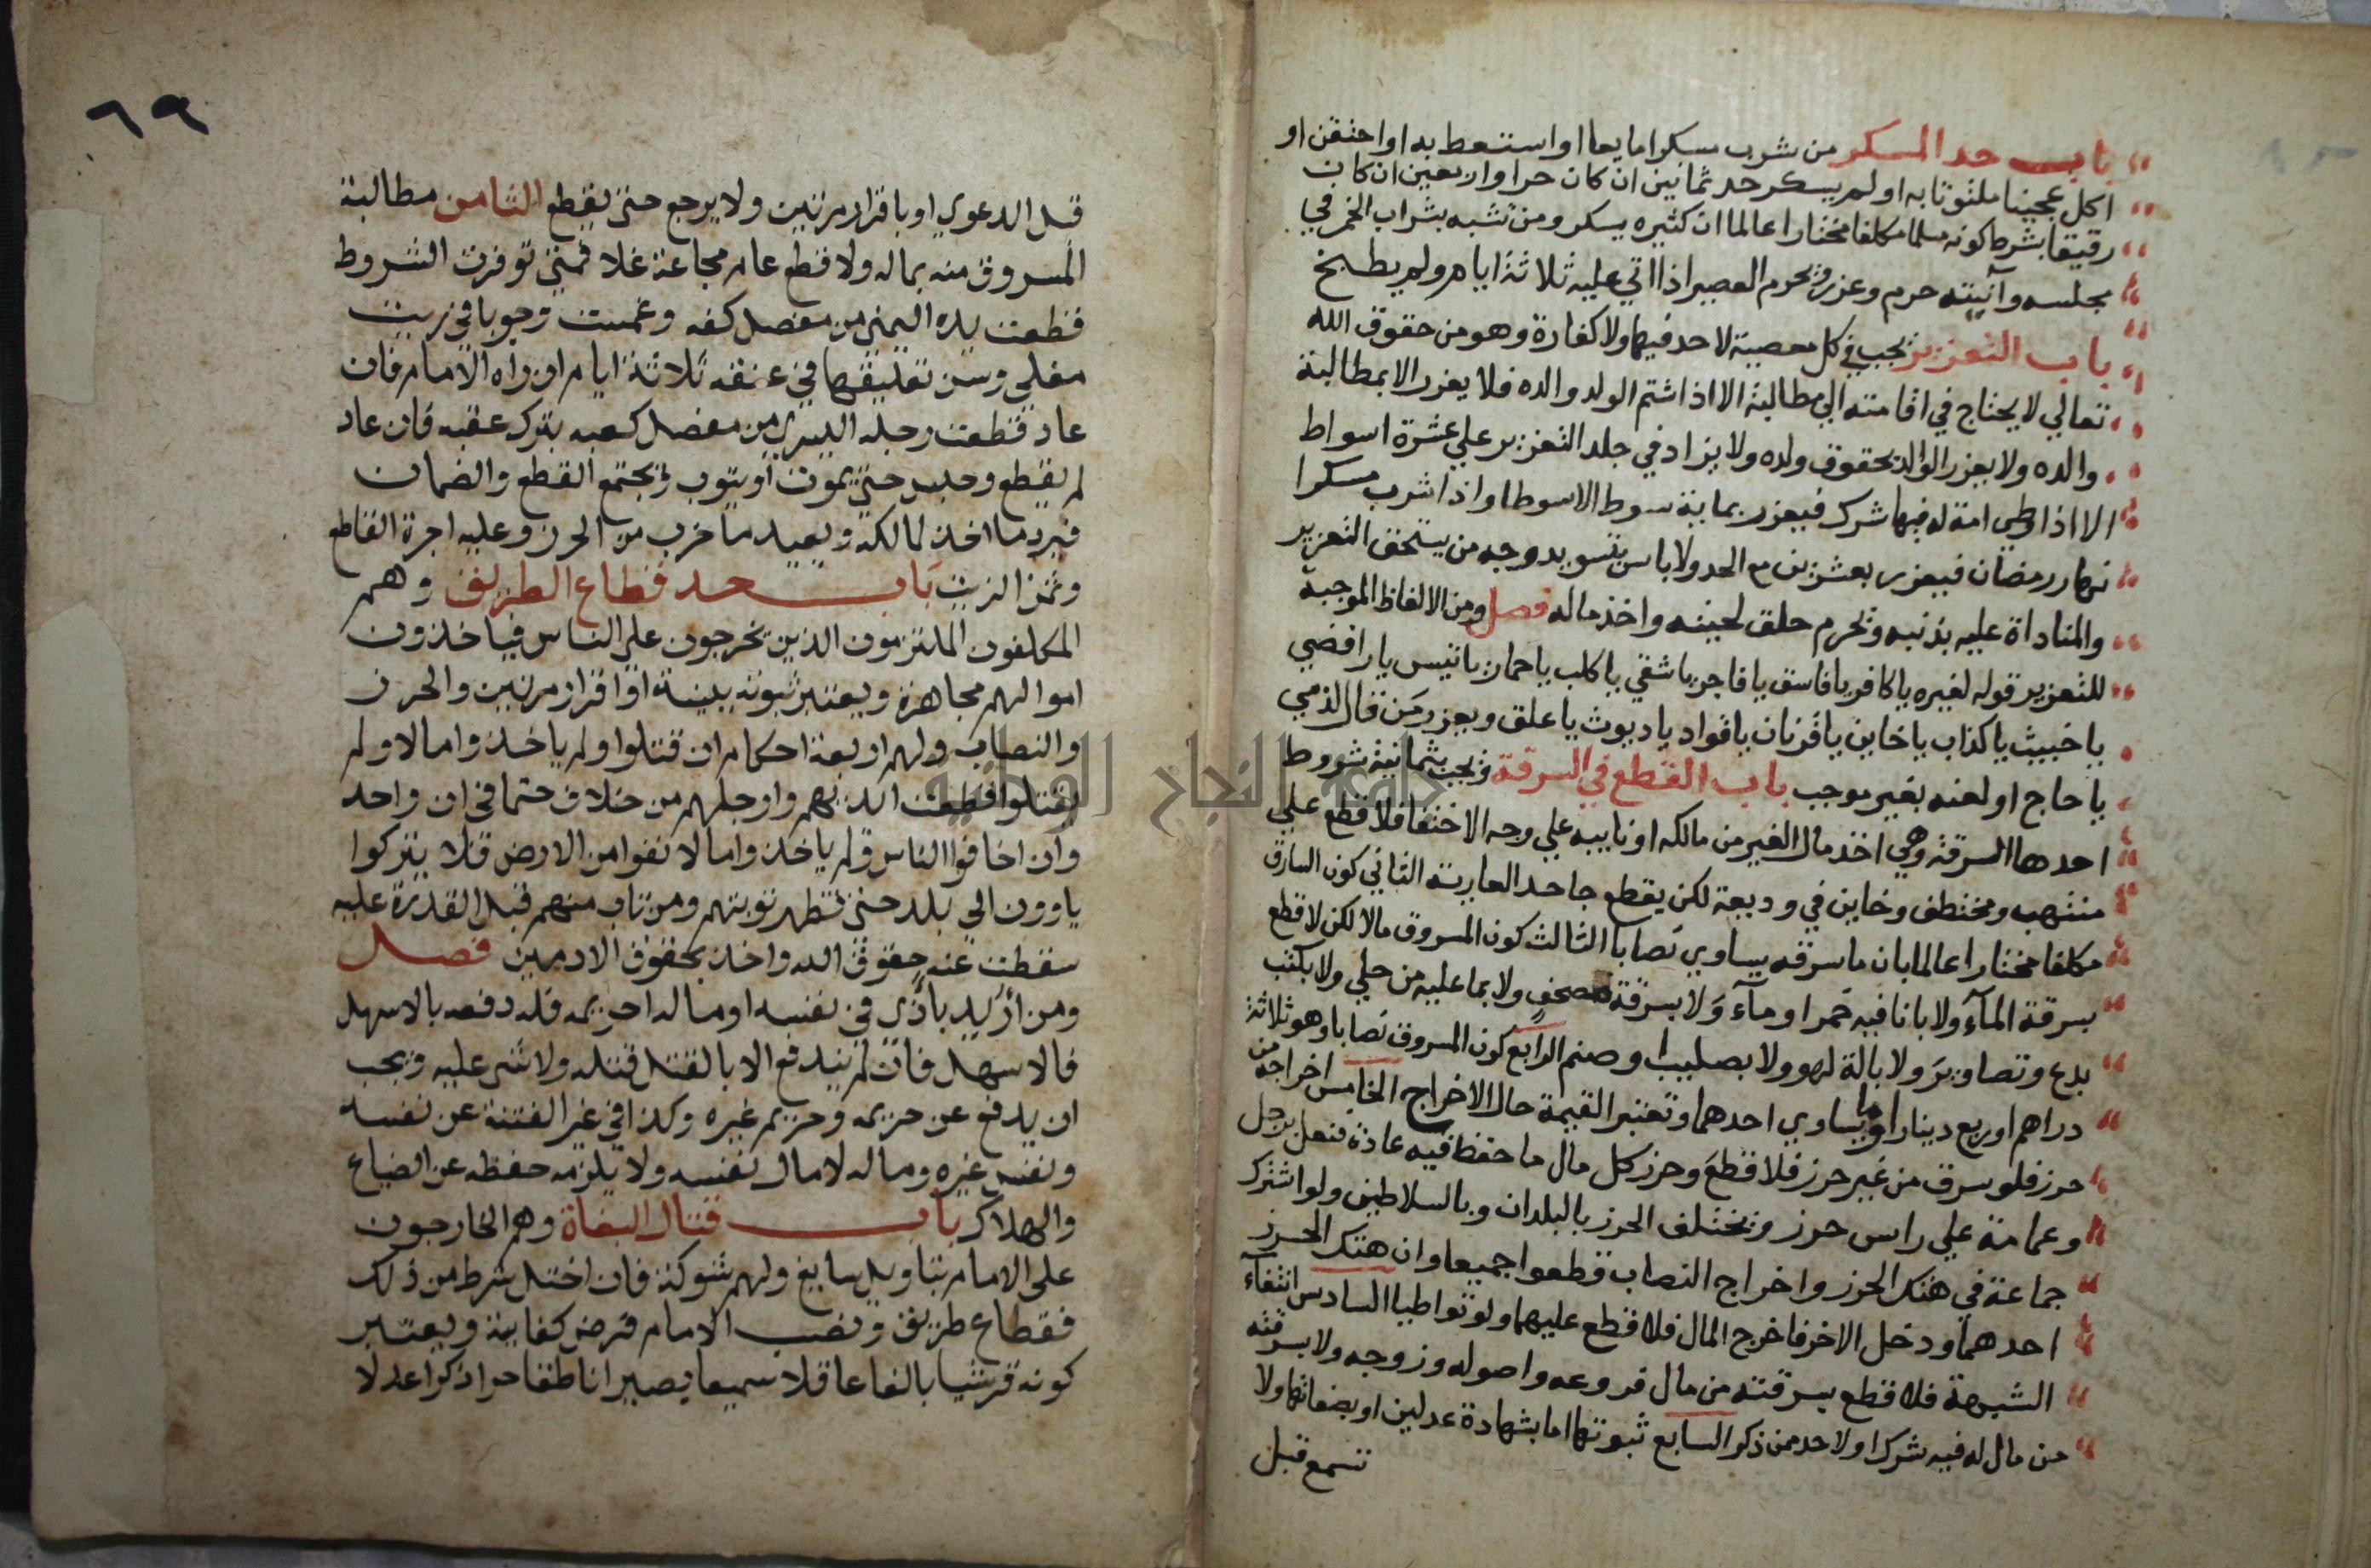 باب حد المسكر من شرب مسكرا مايعا او استعط به او احتقن او
اكل عجينا ملتوتا به او لم يسكر حد ثمانين ان كان حرا واربعين ان كان
رقيقا بشرط كونه مسلما مكلفا مختارا عالما ان كثيره يسكر ومن تشبه بشراب الخمر في
مجلسه وآنيته حرم وعزر ويحرم العصير اذا اتي عليه ثلاثة ايام ولم يطبخ
باب التعزير يجب في كل معصية لا حد فيها ولا كفارة وهو من حقوق الله
تعالي لا يحتاج في اقامته الي مطالبة الا اذا شتم الولد والده فلا يعزر الا بمطالبة
والده ولا يعزر الوالد بحقوق ولده ولا يزاد في جلد التعزير علي عشرة اسواط
الا اذا وطي امة له فيها شرك فيعزر بماية سوط الا سوطا واذا شرب مسكرا
نهار رمضان فيعزر بعشرين مع الحد ولا باس بتسويد وجه من يستحق التعزير
والمناداة عليه بذنبه ويحرم حلق لحيته واخذ ماله فصل ومن الالفاظ الموجبة
للتعزير قوله لغيره يا كافر يا فاسق يا فاجر يا شقي يا كلب يا حمار يا تيس يا رافضي
يا خبيث يا كذاب يا خاين يا قرنان يا قواد يا ديوث يا علق ويعزر من قال لذمي
يا حاج او لعنه بغير موجب باب القطع في السرقة ويجب بثمانية شروط
احدها السرقة وهي اخذ مال الغير من مالكه او نايبه علي وجه الاختفا فلا قطع علي
منتهب ومختطف وخاين في وديعة لكن يقطع جاحد العارية الثاني كون السارق
مكلفا مختارا عالما بان ما سرقه يساوي نصابا الثالث كون المسروق مالا لكن لا قطع
بسرقة المآء ولا بانا فيه خمر او مآء ولا بسرقة مصحف ولا بما عليه من حلي ولا بكتب
بدع وتصاوير ولا بالة لهو ولا بصليب او صنم الرابع كون المسروق نصابا وهو ثلاثة
دراهم او ربع دينار او ما يساوي احدهما وتعتبر القيمة حال الاخراج الخامس اخراجه من
حرز فلو سرق من غير حرز فلا قطع وحرز كل مال ما حفظ فيه عادة فنعل برجل
وعمامة علي راس حرز ويختلف الحرز بالبلدان وبالسلاطين ولو اشترك
جماعة في هتك الحرز واخراج النصاب قطعوا جميعا وان هتك الحرز
احدهما ودخل الاخر فاخرج المال فلا قطع عليهما ولو تواطيا السادس انتفآء
الشبهة فلا قطع بسرقته من مال فروعه واصوله وزوجه ولا بسرقته
من مال له فيه شرك او لاحد ممن ذكر السابع ثبوتها اما بشهادة عدلين او يصفانها ولا
تسمع قبل
٦٩
قبل الدعوي او باقرار مرتين ولا يرجع حتي يقطع الثامن مطالبة
المسروق منه بماله ولا قطع عام مجاعة غلا فمتي توفرت الشروط
قطعت يده اليمني من مفصل كفه وغمست وجوبا في زيت
مغلي وسن تعليقها في عنقه ثلاثة ايام ان راه الامام فان
عاد قطعت رجله اليسري من مفصل كعبه بترك عقبه فان عاد
لم يقطع وحبس حتي يموت او يتوب ويجتمع القطع والضمان
فيرد ما اخذ لمالكه ويعيد ما خرب من الحرز وعليه اجرة القاطع
وثمن الزيت باب حد قطاع الطريق وهم
المكلفون الملتزمون الذين يخرجون علي الناس فياخذون
اموالهم مجاهرة ويعتبر ثبوته ببينة او اقرار مرتين والحرز
والنصاب ولهم اربعة احكام ان قتلوا ولم ياخذوا مالا ولم
يقتلوا قطعت ايديهم وارجلهم من خلاف حتما في ان واحد
وان اخافوا الناس ولم ياخذوا مالا نفوا من الارض فلا يتركوا
ياوون الي بلد حتي تظهر توبتهم ومن تاب منهم قبل القدرة عليه
سقطت عنه حقوق الله واخذ بحقوق الادميين فصل
ومن اريد باذي في نفسه او ماله او حريمه فله دفعه بالاسهل
فالاسهل فان لم يندفع الا بالقتل قتله ولا شي عليه ويجب
ان يدفع عن حريمه وحريم غيره وكذا في غير الفتنة عن نفسه
ونفس غيره وماله لا مال نفسه ولا يلزمه حفظه عن الضياع
والهلاك باب قتال البغاة وهم الخارجون
علي الامام بتاويل سايغ ولهم شوكة فان اختل شرط من ذلك
فقطاع طريق ونصب الامام فرض كفاية ويعتبر
كونه قرشيا بالغا عاقلا سميعا بصيرا ناطقا حرا ذكرا عدلا
جامعة النجاح الوطنية